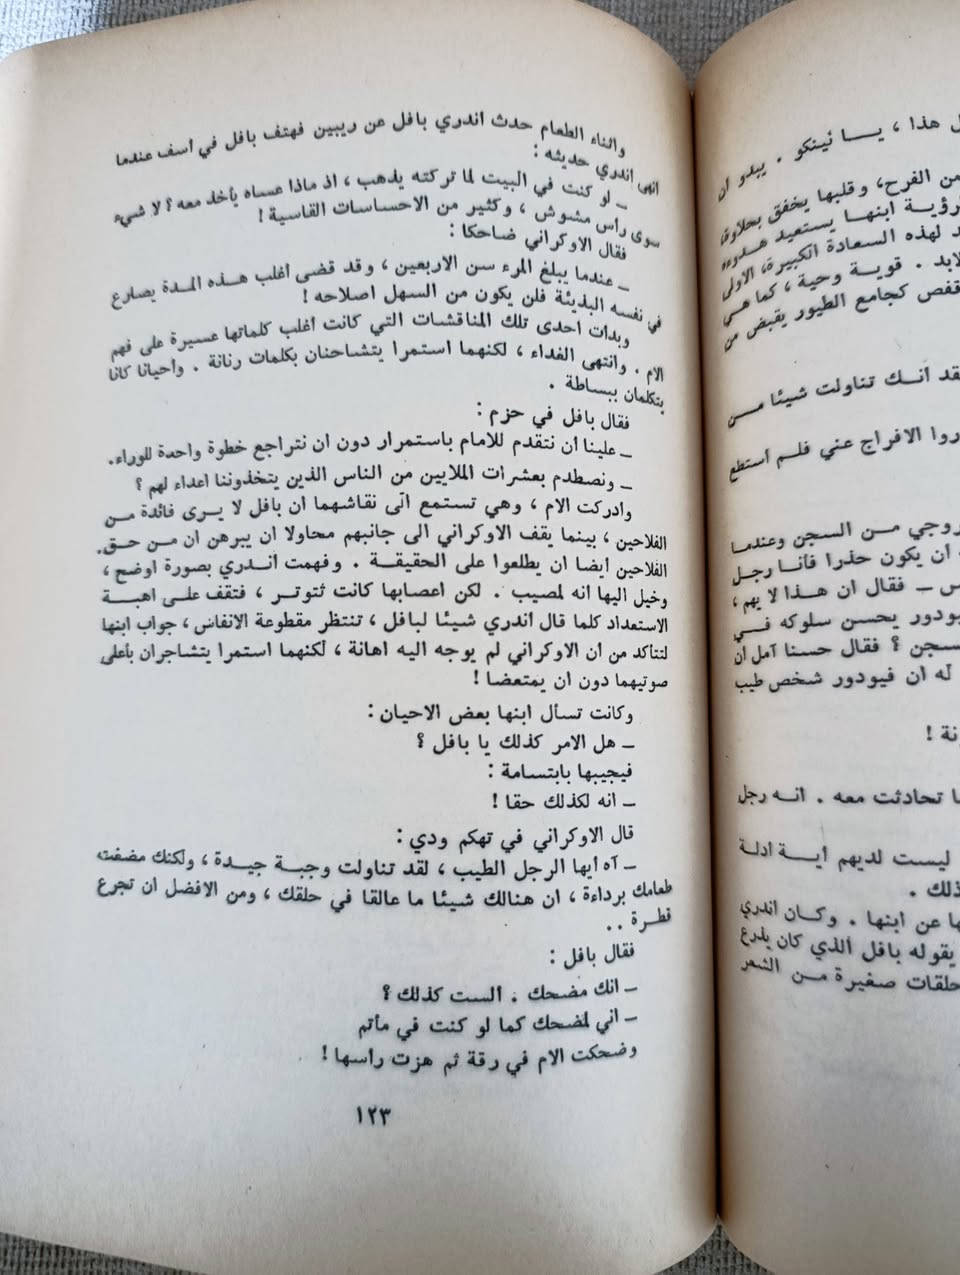 واثناء الطعام حدث اندري بافل عن ريبين فهتف بافل في أسف عندما
انهى اندري حديثه :
ــ لو كنت في البيت لما تركته يذهب ، اذ ماذا عساه يأخذ معه ؟ لا شيء
سوى رأس مشوش ، وكثير من الاحساسات القاسية !
فقال الاوكراني ضاحكا :
ــ عندما يبلغ المرء سن الاربعين ، وقد قضى أغلب هذه المدة يصارع
في نفسه البذيئة فلن يكون من السهل اصلاحه !
وبدأت احدى تلك المناقشات التي كانت أغلب كلماتها عسيرة على فهم
الام . وانتهى الغداء ، لكنهما استمرا يتشاحنان بكلمات رنانة . واحيانا كانا
يتكلمان ببساطة .
فقال بافل في حزم :
ــ علينا ان نتقدم للامام باستمرار دون ان نتراجع خطوة واحدة للوراء.
ــ ونصطدم بعشرات الملايين من الناس الذين يتخذوننا اعداء لهم ؟
وادركت الام ، وهي تستمع الى نقاشهما ان بافل لا يرى فائدة من
الفلاحين ، بينما يقف الاوكراني الى جانبهم محاولا ان يبرهن ان من حق
الفلاحين ايضا ان يطلعوا على الحقيقة . وفهمت أندري بصورة اوضح ،
وخيل اليها انه لمصيب . لكن اعصابها كانت تتوتر ، فتقف على اهبة
الاستعداد كلما قال اندري شيئا لبافل ، تنتظر مقطوعة الانفاس ، جواب ابنها
لتتأكد من ان الاوكراني لم يوجه اليه اهانة ، لكنهما استمرا يتشاجران بأعلى
صوتيهما دون ان يمتعضا !
وكانت تسأل ابنها بعض الاحيان :
ــ هل الامر كذلك يا بافل ؟
فيجيبها بابتسامة :
ــ انه لكذلك حقا !
قال الاوكراني في تهكم ودي :
ــ آه أيها الرجل الطيب ، لقد تناولت وجبة جيدة ، ولكنك مضغت
طعامك برداءة ، ان هنالك شيئا ما عالقا في حلقك ، ومن الافضل ان تجرع
قطرة ..
فقال بافل :
ــ انك مضحك . الست كذلك ؟
ــ اني لمضحك كما لو كنت في مأتم
وضحكت الام في رقة ثم هزت راسها !
١٢٣
هذا ، يا نينكو . يبدو ان
من الفرح، وقلبها يخفق بحلاوة
رؤية ابنها يستعيد هدوءه
لهذه السعادة الكبيرة، الاولى
لابد . قوية وحية ، كما هي
قفص كجامع الطيور يقبض من
انك تناولت شيئا من
الافراج عني فلم أستطع
من السجن وعندما
ان يكون حذرا فأنا رجل
ــ فقال ان هذا لا يهم ،
يحسن سلوكه في
؟ فقال حسنا آمل ان
له ان فيودور شخص طيب
!
تحادثت معه . انه رجل
ليست لديهم أية ادلة
ذلك .
عن ابنها . وكان اندري
يقوله بافل الذي كان يذرع
حلقات صغيرة من الشعر